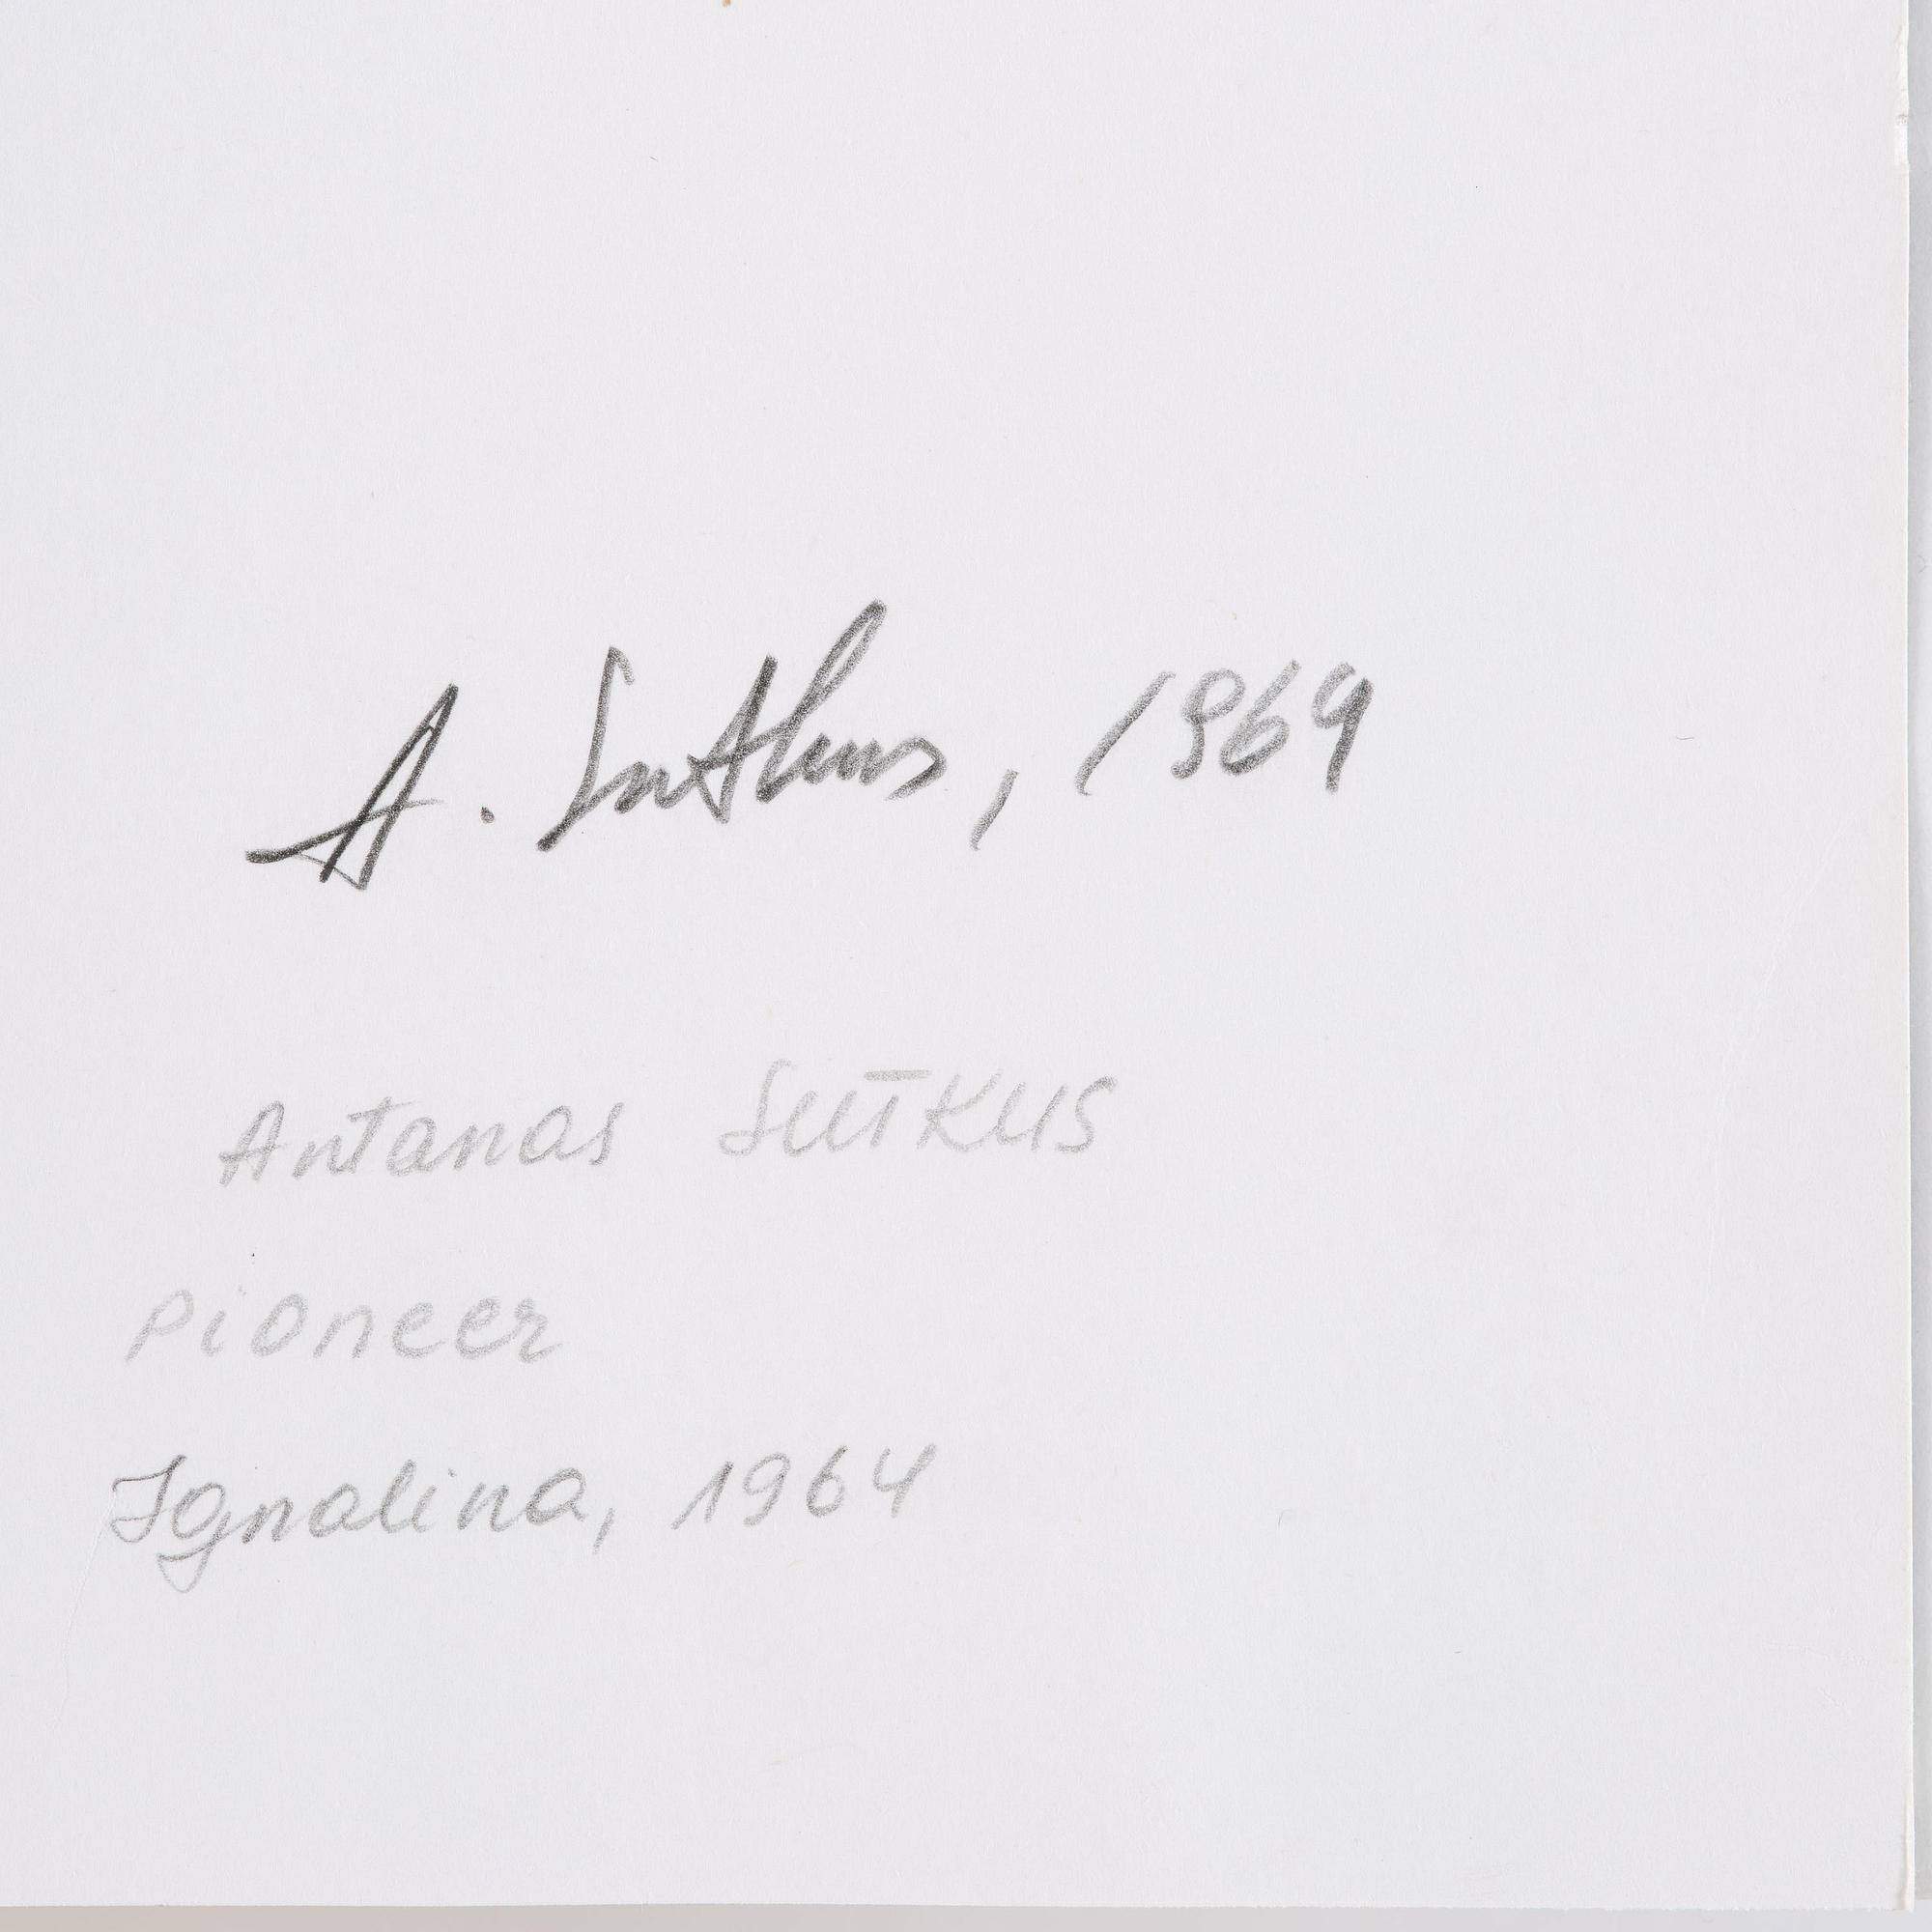 A. Sutkus, 1969
Antanas Sutkus
Pioneer
Ignalina, 1964